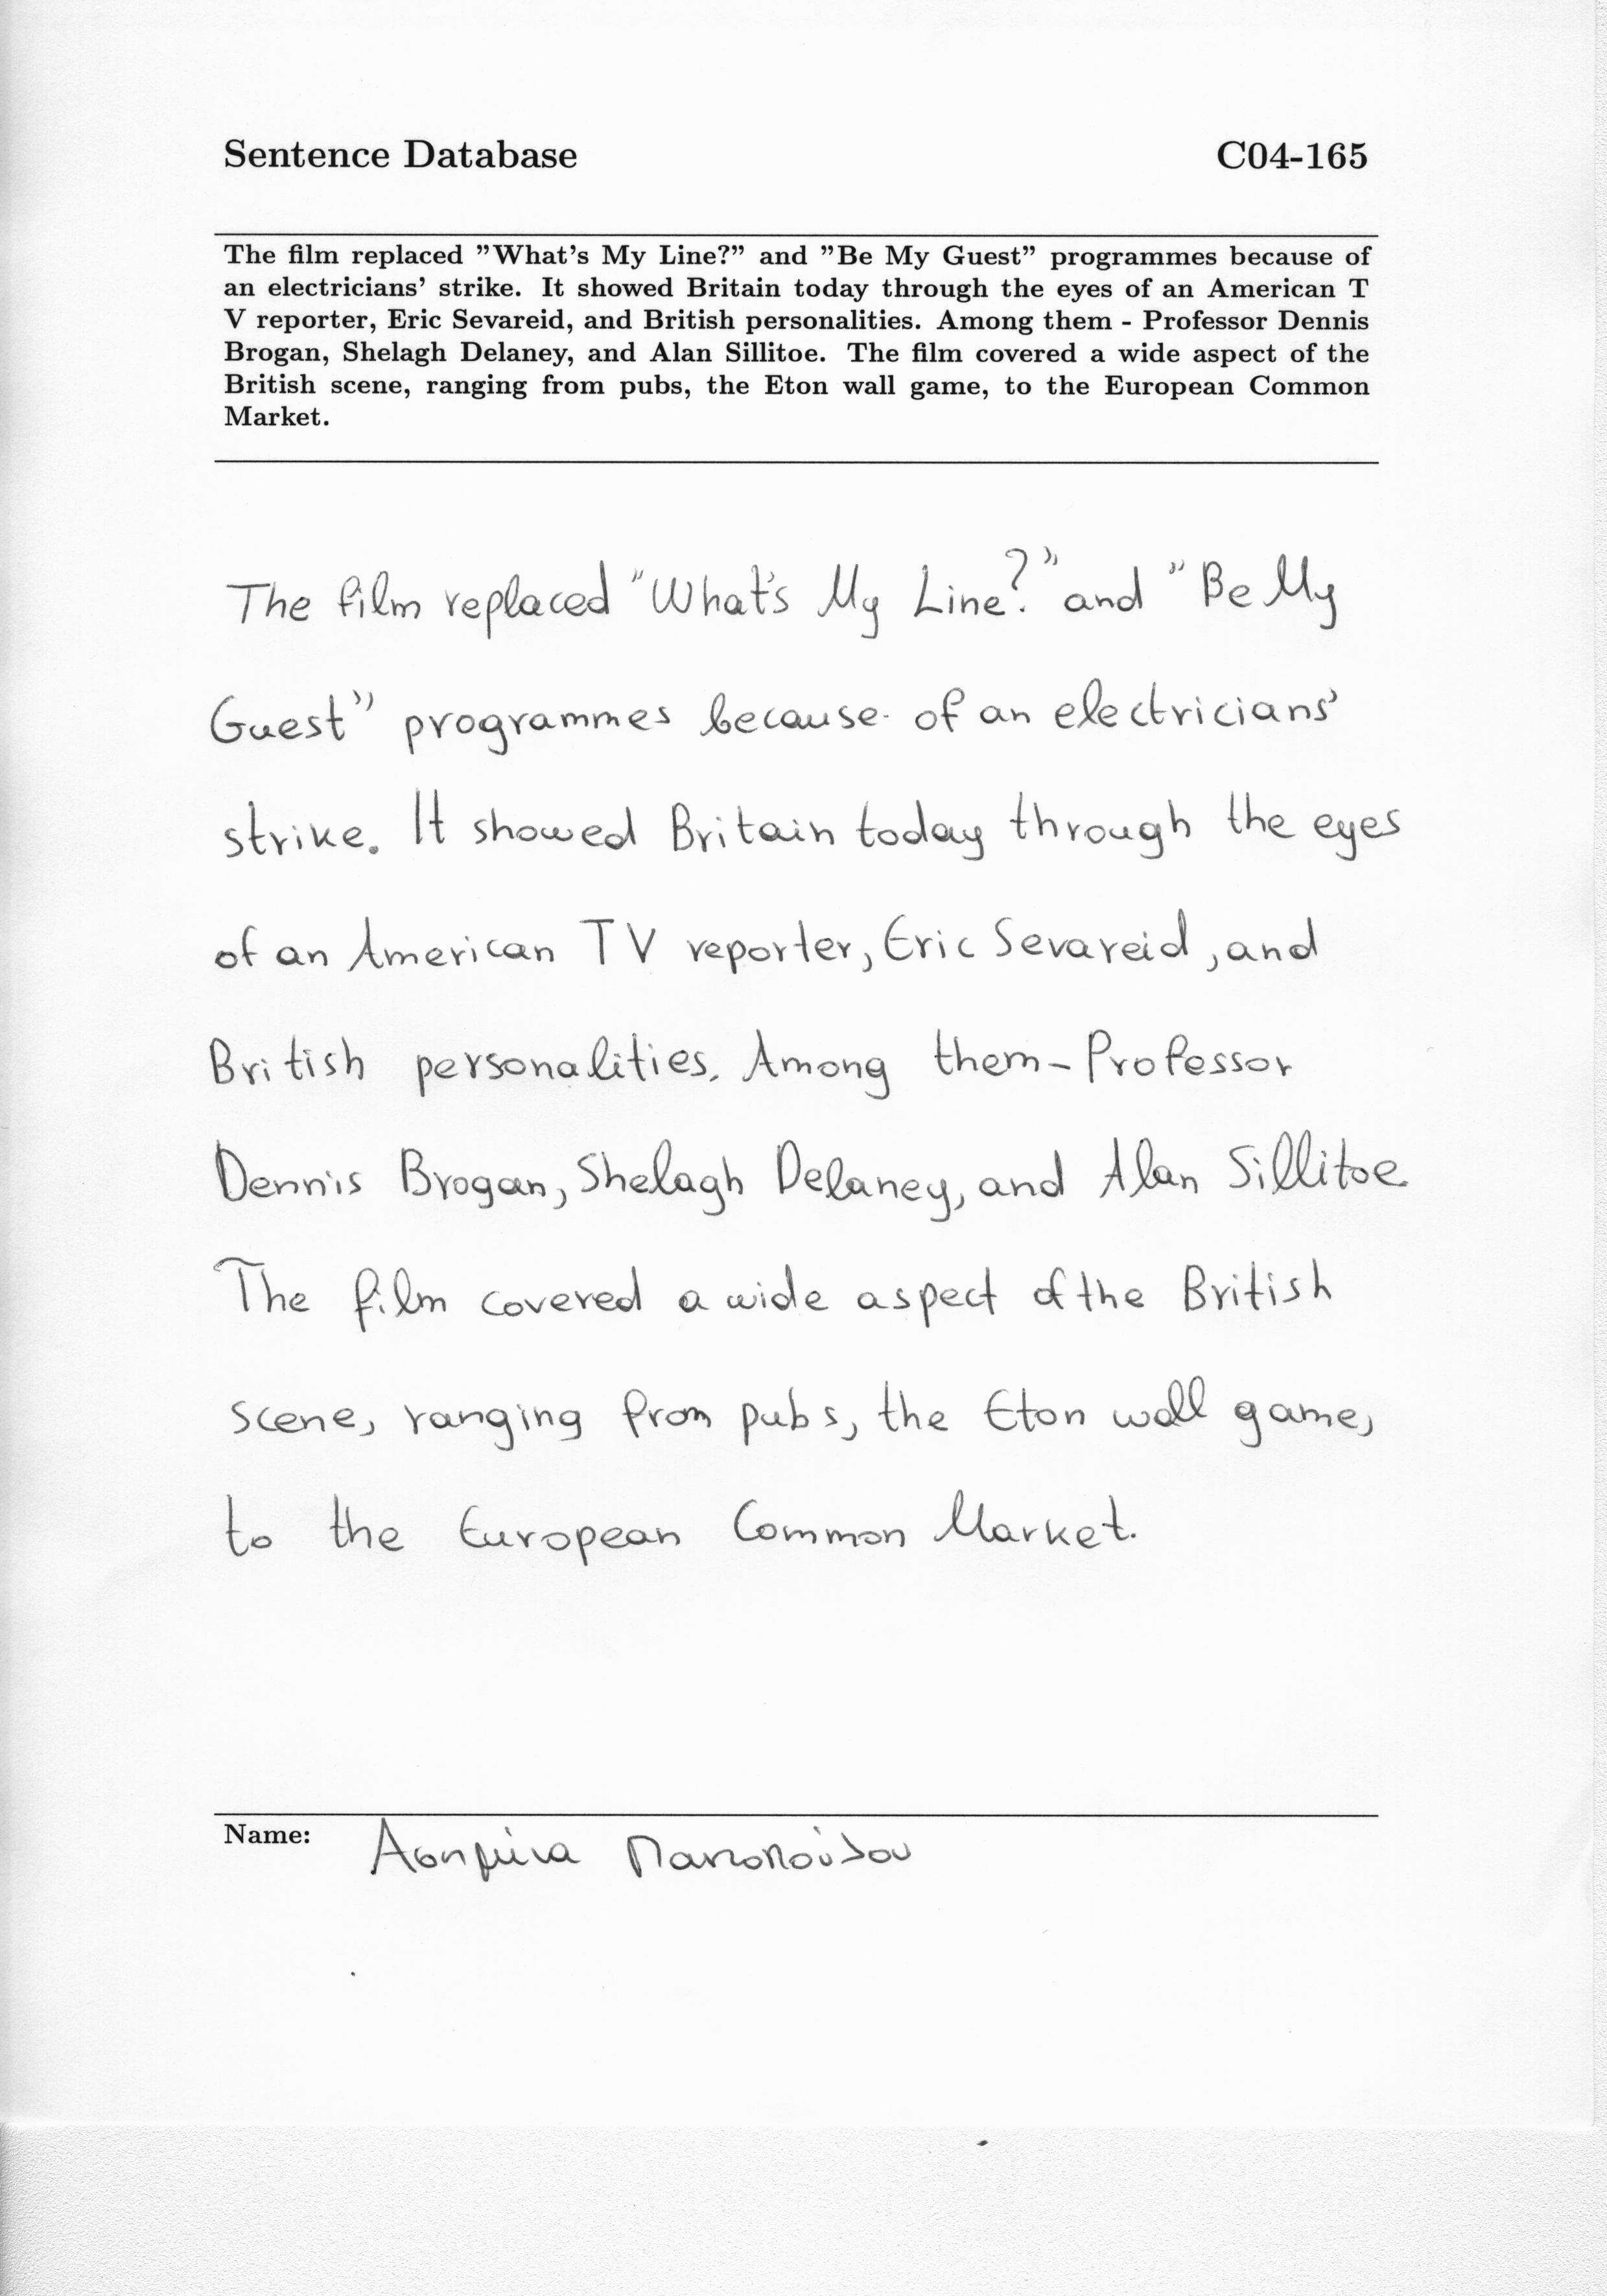 Sentence Database C04-165
The film replaced ”What’s My Line?” and ”Be My Guest” programmes because of
an electricians’ strike. It showed Britain today through the eyes of an American T
V reporter, Eric Sevareid, and British personalities. Among them - Professor Dennis
Brogan, Shelagh Delaney, and Alan Sillitoe. The film covered a wide aspect of the
British scene, ranging from pubs, the Eton wall game, to the European Common
Market.
The film replaced "What's My Line?" and "Be My
Guest" programmes because of an electricians'
strike. It showed Britain today through the eyes
of an American TV reporter, Eric Sevareid, and
British personalities. Among them - Professor
Dennis Brogan, Shelagh Delaney, and Alan Sillitoe.
The film covered a wide aspect of the British
scene, ranging from pubs, the Eton wall game,
to the European Common Market.
Name: Ασημίνα